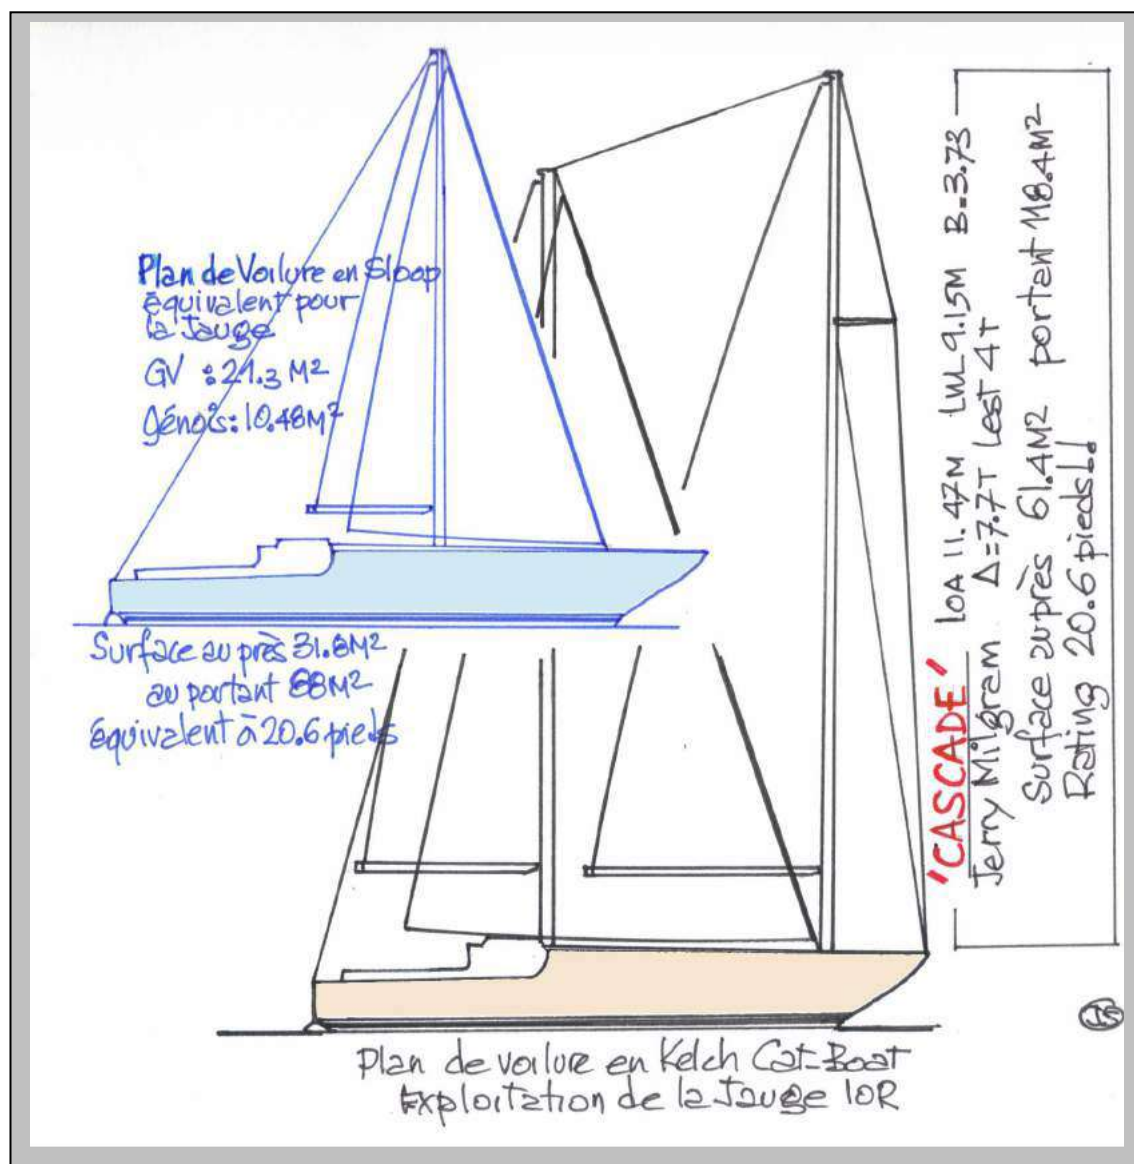 Plan de Voilure en Sloop
équivalent pour
la Jauge
GV : 21.3 M²
Génois: 10.48M²
Surface au près 31.8M²
au portant 88M²
équivalent à 20.6 pieds
"CASCADE" LOA 11.47M LWL 9.15M B=3.73
Jerry Milgram Δ=7.7T Lest 4T
Surface au près 61.4M² portant 118.4M²
Rating 20.6 pieds!!
Plan de voilure en Ketch Cat-Boat
Exploitation de la Jauge IOR